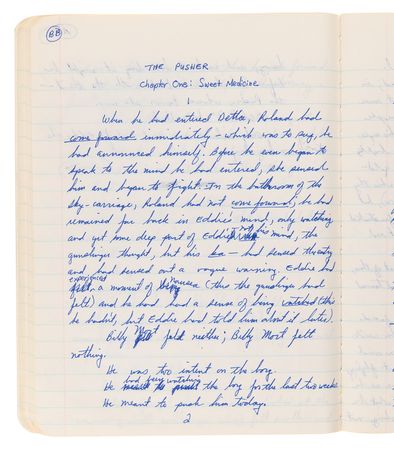 BB
THE PUSHER
Chapter One: Sweet Medicine
1
When he had entered Detta, Roland had
come forward immediately – which was to say, he
had announced himself. Before he even began to
speak to the mind he had entered, she sensed
him and began to fight. In the bathroom of the
sky-carriage, Roland had not come forward; he had
remained far back in Eddie's mind, only watching
and yet some deep part of Eddie not his mind, the
gunslinger thought, but his ka – had sensed the entry
and had sent out a vague warning. Eddie had
experienced
felt a moment of nausea (this the gunslinger had
felt) and he had had a sense of being watched (this
he hadn't, but Eddie had told him about it later).
Billy Mort felt neither; Billy Mort felt
nothing.
He was two intent on the boy.
had been watching
He the boy for the last two weeks.
He meant to push him today.
2